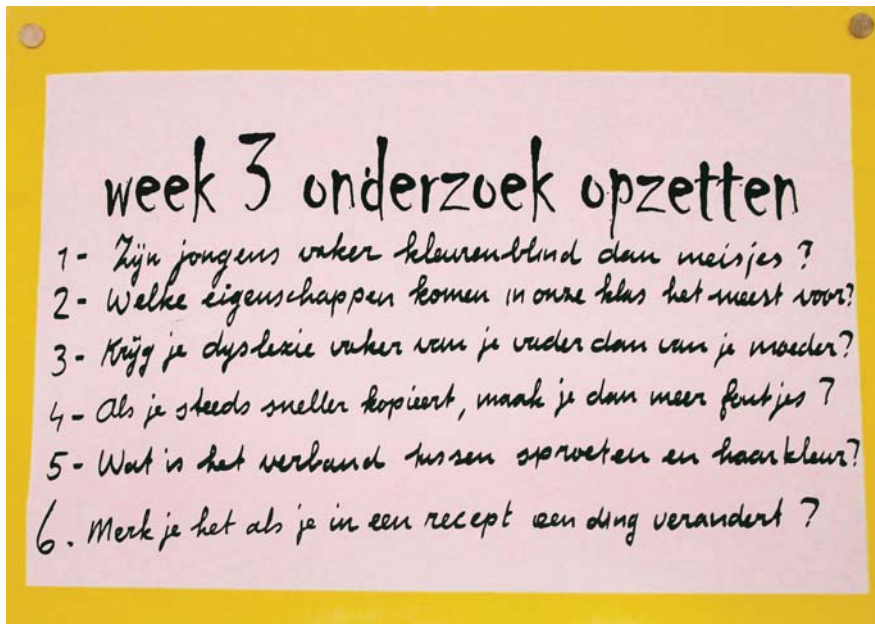 week 3 onderzoek opzetten
1- Zijn jongens vaker kleurenblind dan meisjes?
2- Welke eigenschappen komen in onze klas het meest voor?
3- Krijg je dyslexie vaker van je vader dan van je moeder?
4- Als je steeds sneller kopieert, maak je dan meer foutjes?
5- Wat is het verband tussen sproeten en haarkleur?
6. Merk je het als je in een recept een ding verandert?